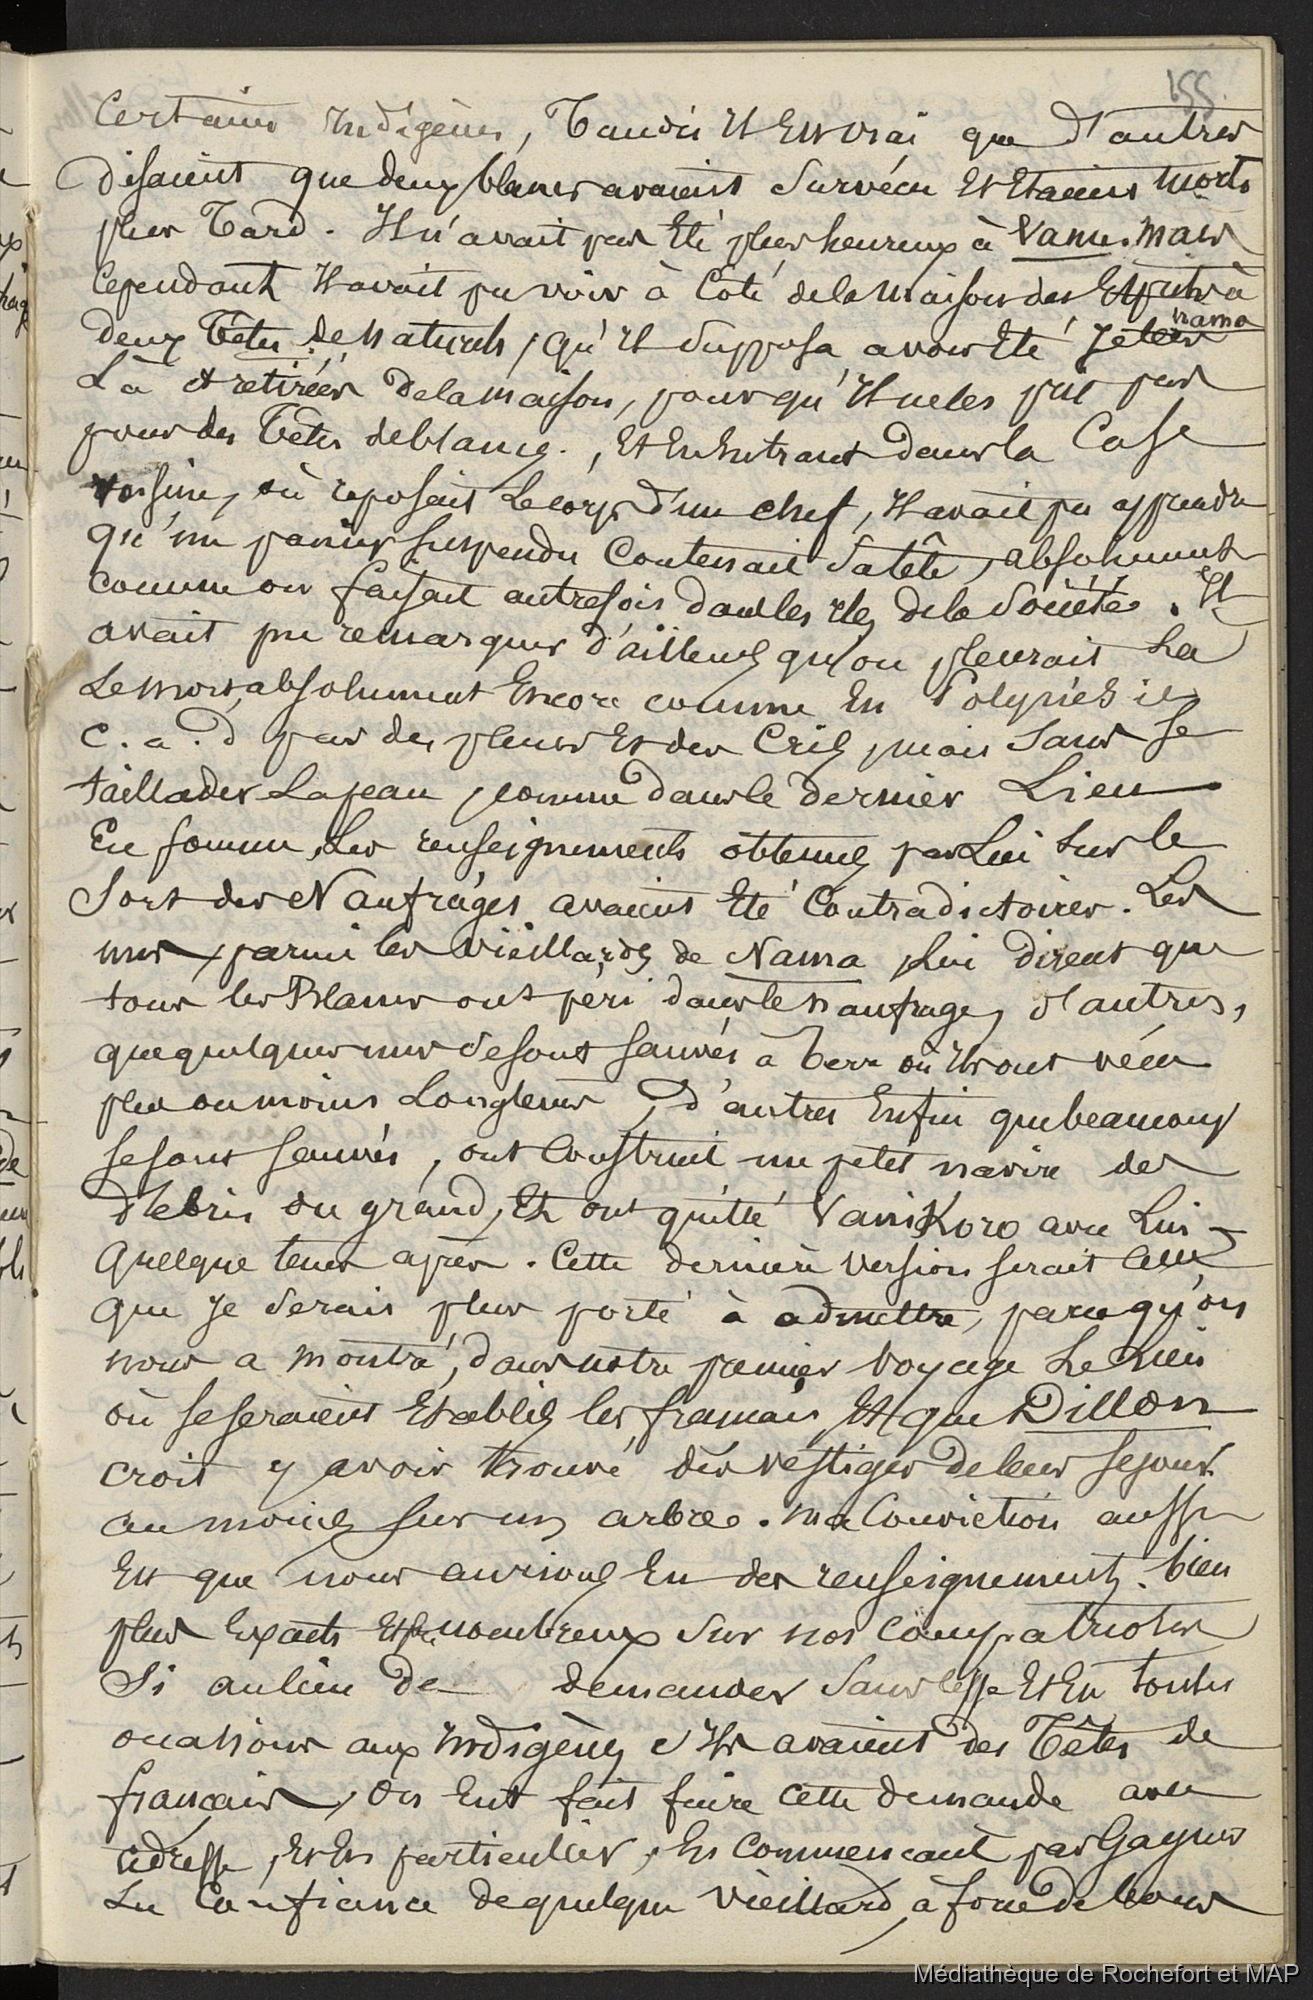 155
Certains indigènes, Tandis Il est vrai que d'autres
disaient que deux blancs avaient survécu Et Etaient morts
plus Tard. Il n'avait pas Eté plus heureux à Vanu. mais
Cependant Il avait pu voir à Côté de la maison des Esprits à
nama
deux Têtes de naturels, qu'il supposa avoir Eté Jetées
Là et retirées de la maison, pour qu'Il ne les prit pas
pour des Têtes de blancs., Et En Entrant dans la Case
voisine, où reposait Le corps d'un chef, Il avait pu apprendre
qu'un panier suspendu Contenait sa tête, absolument
comme on faisait autrefois dans les iles de la Société. Il
avait pu remarquer d'ailleurs qu'on pleurait La
Le mort, absolument Encore comme En Polynésie
c. a. d par des pleurs Et des Cris, mais sans se
taillader La peau, comme dans le dernier Lieu
En somme, Les renseignements obtenus par Lui sur le
Sort des Naufragés avaient Eté Contradictoires. Les
uns, parmi les vieillards de Nama, Lui dirent que
tous les Blancs ont péri dans le naufrage, d'autres,
que quelques uns se sont sauvés à terre où Ils ont vécu
plus ou moins Longtems, d'autres Enfin que beaucoup
se sont sauvés, ont Construit un petit navire des
débris du grand, Et ont quitté Vanikoro avec Lui
quelque tems après. Cette dernière version serait Celle
que Je serais plus porté à admettre, parce qu'on
nous a montré, dans notre premier voyage Le Lieu
où se seraient Etablis les français, Et que Dillon
croit y avoir trouvé des vestiges de leur séjour
au moins sur un arbre. ma Conviction aussi
Est que nous aurions Eu des renseignements bien
plus Exacts Et plus nombreux sur nos Compatriotes
Si au lieu de demander sans cesse Et En toutes
occasions aux indigènes s'Ils avaient des Têtes de
français, on Eut fait faire cette demande avec
adresse, Et En particulier, En commencant par Gagner
La Confiance de quelque vieillard, à force de bons
Médiathèque de Rochefort et MAP